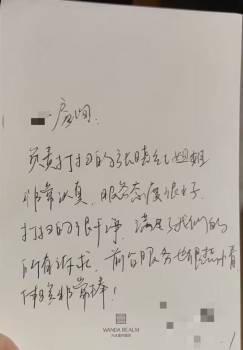 房间:
负责打扫的张晴红姐姐
非常认真,服务态度很好,
打扫的很干净,满足了我们的
所有诉求,前台服务也很热情
体验非常棒!
WANDA REALM